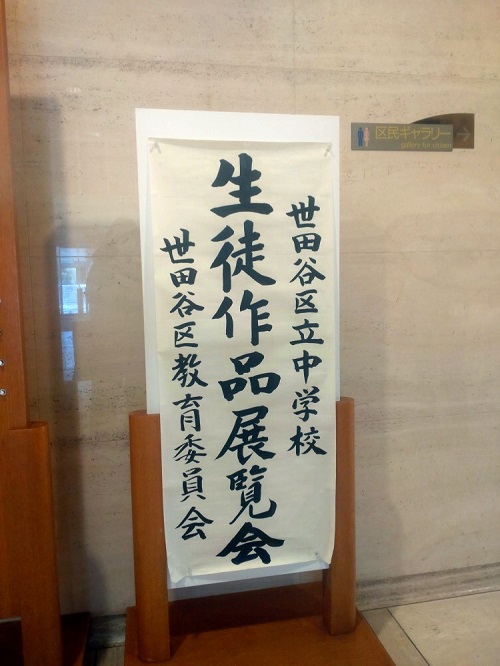 世田谷区立中学校
生徒作品展覧会
世田谷区教育委員会
区民ギャラリー
gallery for citizen